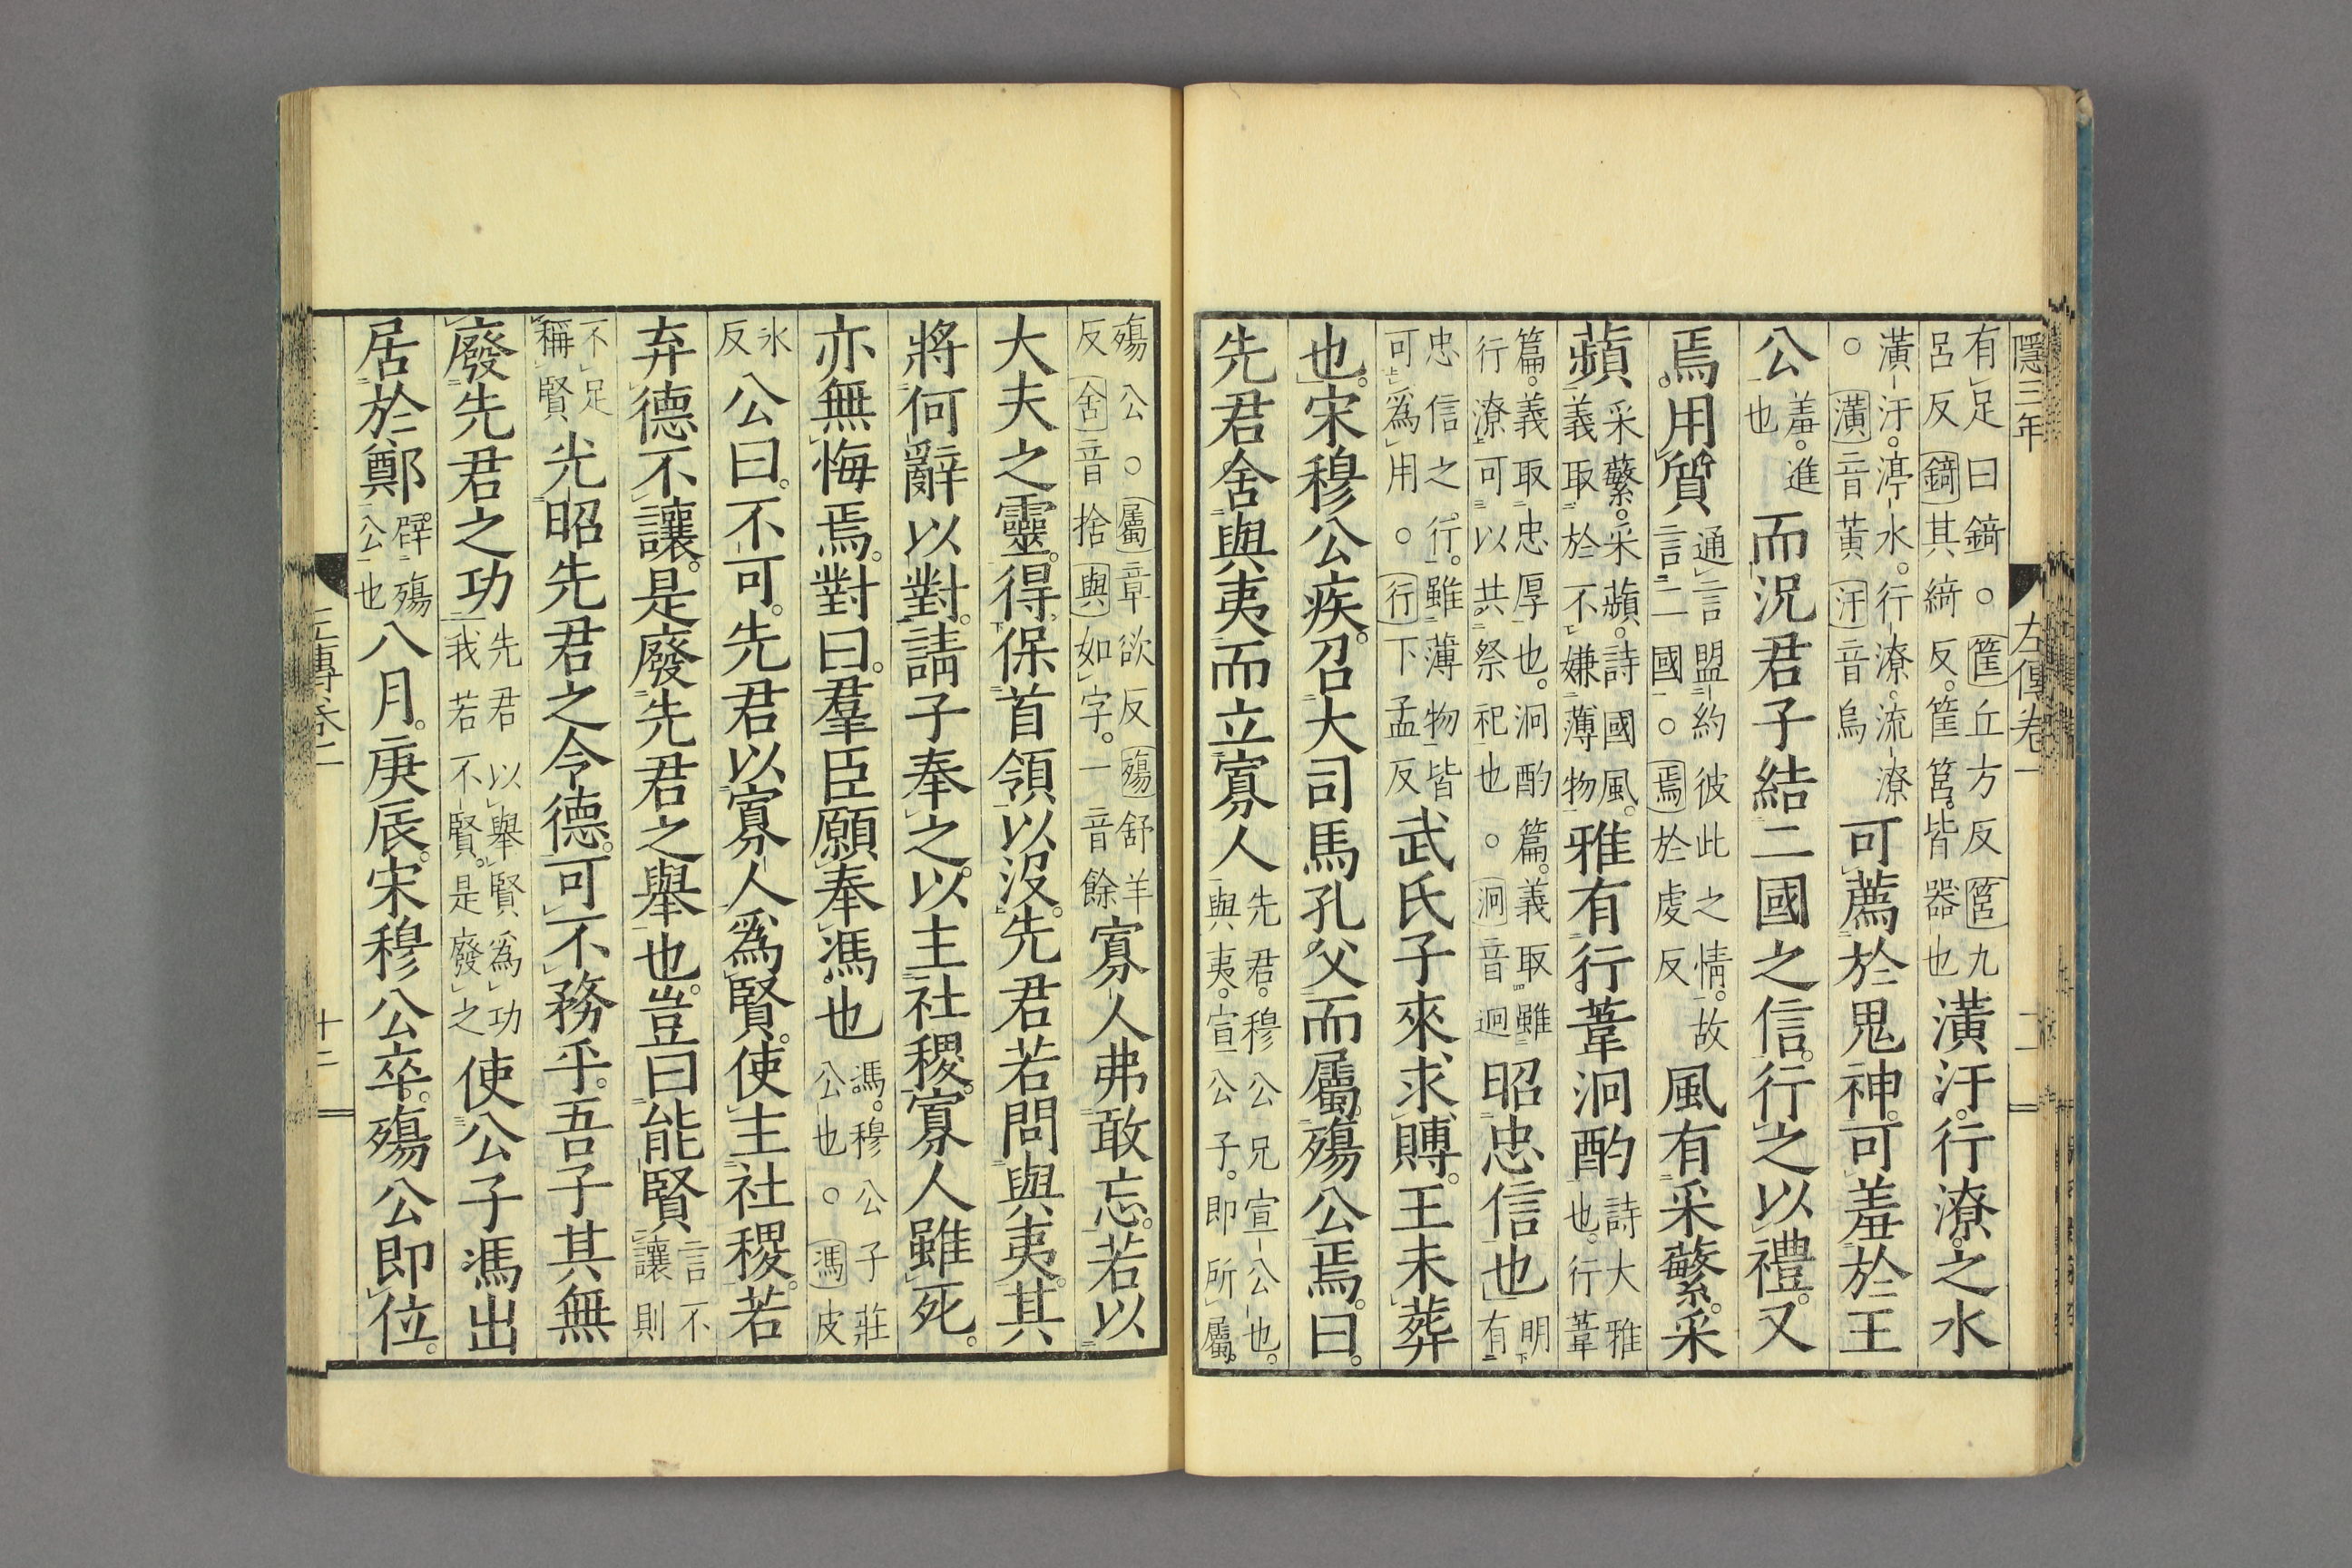 隱三年 左傳卷一
有足曰錡。筐丘方反筥九呂反錡其綺反。筐筥。皆器也潢汙。行潦。之水
潢汙。渟水。行潦。流潦。潢音黃汙音烏可薦於鬼神。可羞於王
公羞。進也而況君子結二國之信。行之以禮。又
焉。用質通言盟約彼此之情。故言二國。焉於虔反風有采蘩。采
蘋采蘩。采蘋。詩國風。義取於不嫌薄物雅有行葦泂酌詩大雅也。行葦
篇。義取忠厚也。泂酌篇。義取雖行潦可以共祭祀也。泂音迥昭忠信也明有
忠信之行。雖薄物皆可爲用。行下孟反武氏子來求賻。王未葬
也。宋穆公疾。召大司馬孔父而屬殤公焉。曰。
先君舍與夷而立寡人先君。穆公兄宣公也。與夷。宣公子。即所屬。
殤公。屬章欲反殤舒羊反舍音捨與如字。一音餘寡人弗敢忘。若以
大夫之靈。得保首領以沒。先君若問與夷。其
將何辭以對。請子奉之。以主社稷。寡人雖死。
亦無悔焉。對曰。羣臣願奉馮也馮。穆公子莊公也。馮皮
冰反公曰。不可。先君以寡人爲賢。使主社稷。若
弃德不讓。是廢先君之舉也。豈曰能賢言不讓則
不足稱賢光昭先君之令德。可不務乎。吾子其無
廢先君之功先君以舉賢爲功我若不賢。是廢之使公子馮出
居於鄭辟殤公也八月。庚辰。宋穆公卒。殤公即位。
十二